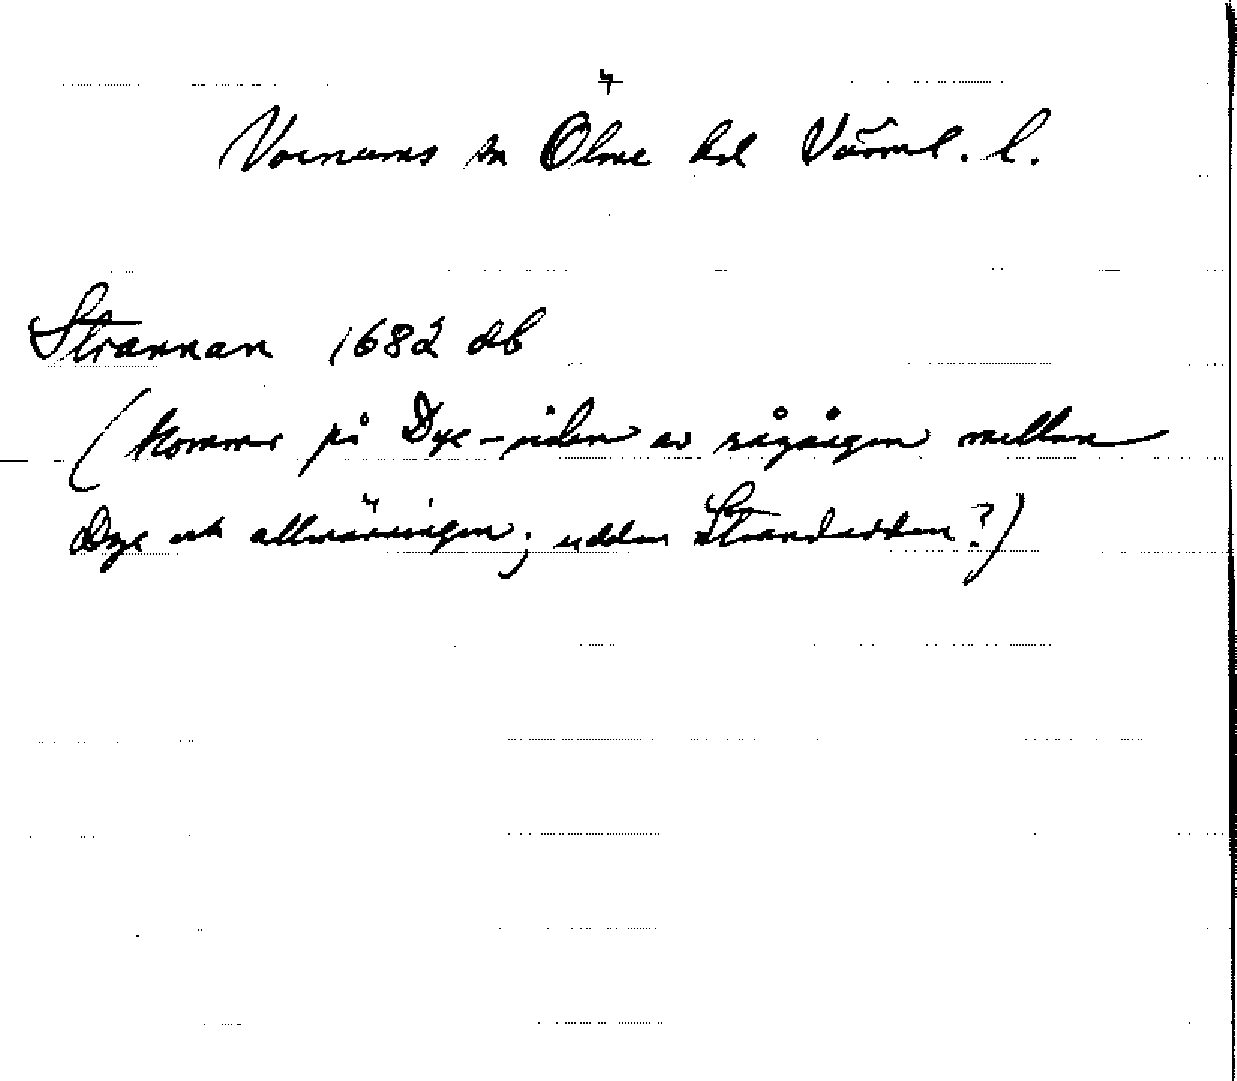 Varnums sn Ölme hd Värml. l.
Strannan 1682 db
(kommer på Dye-sidan av rågången mellan
Dye och allmänningen; udden Strandudden?)